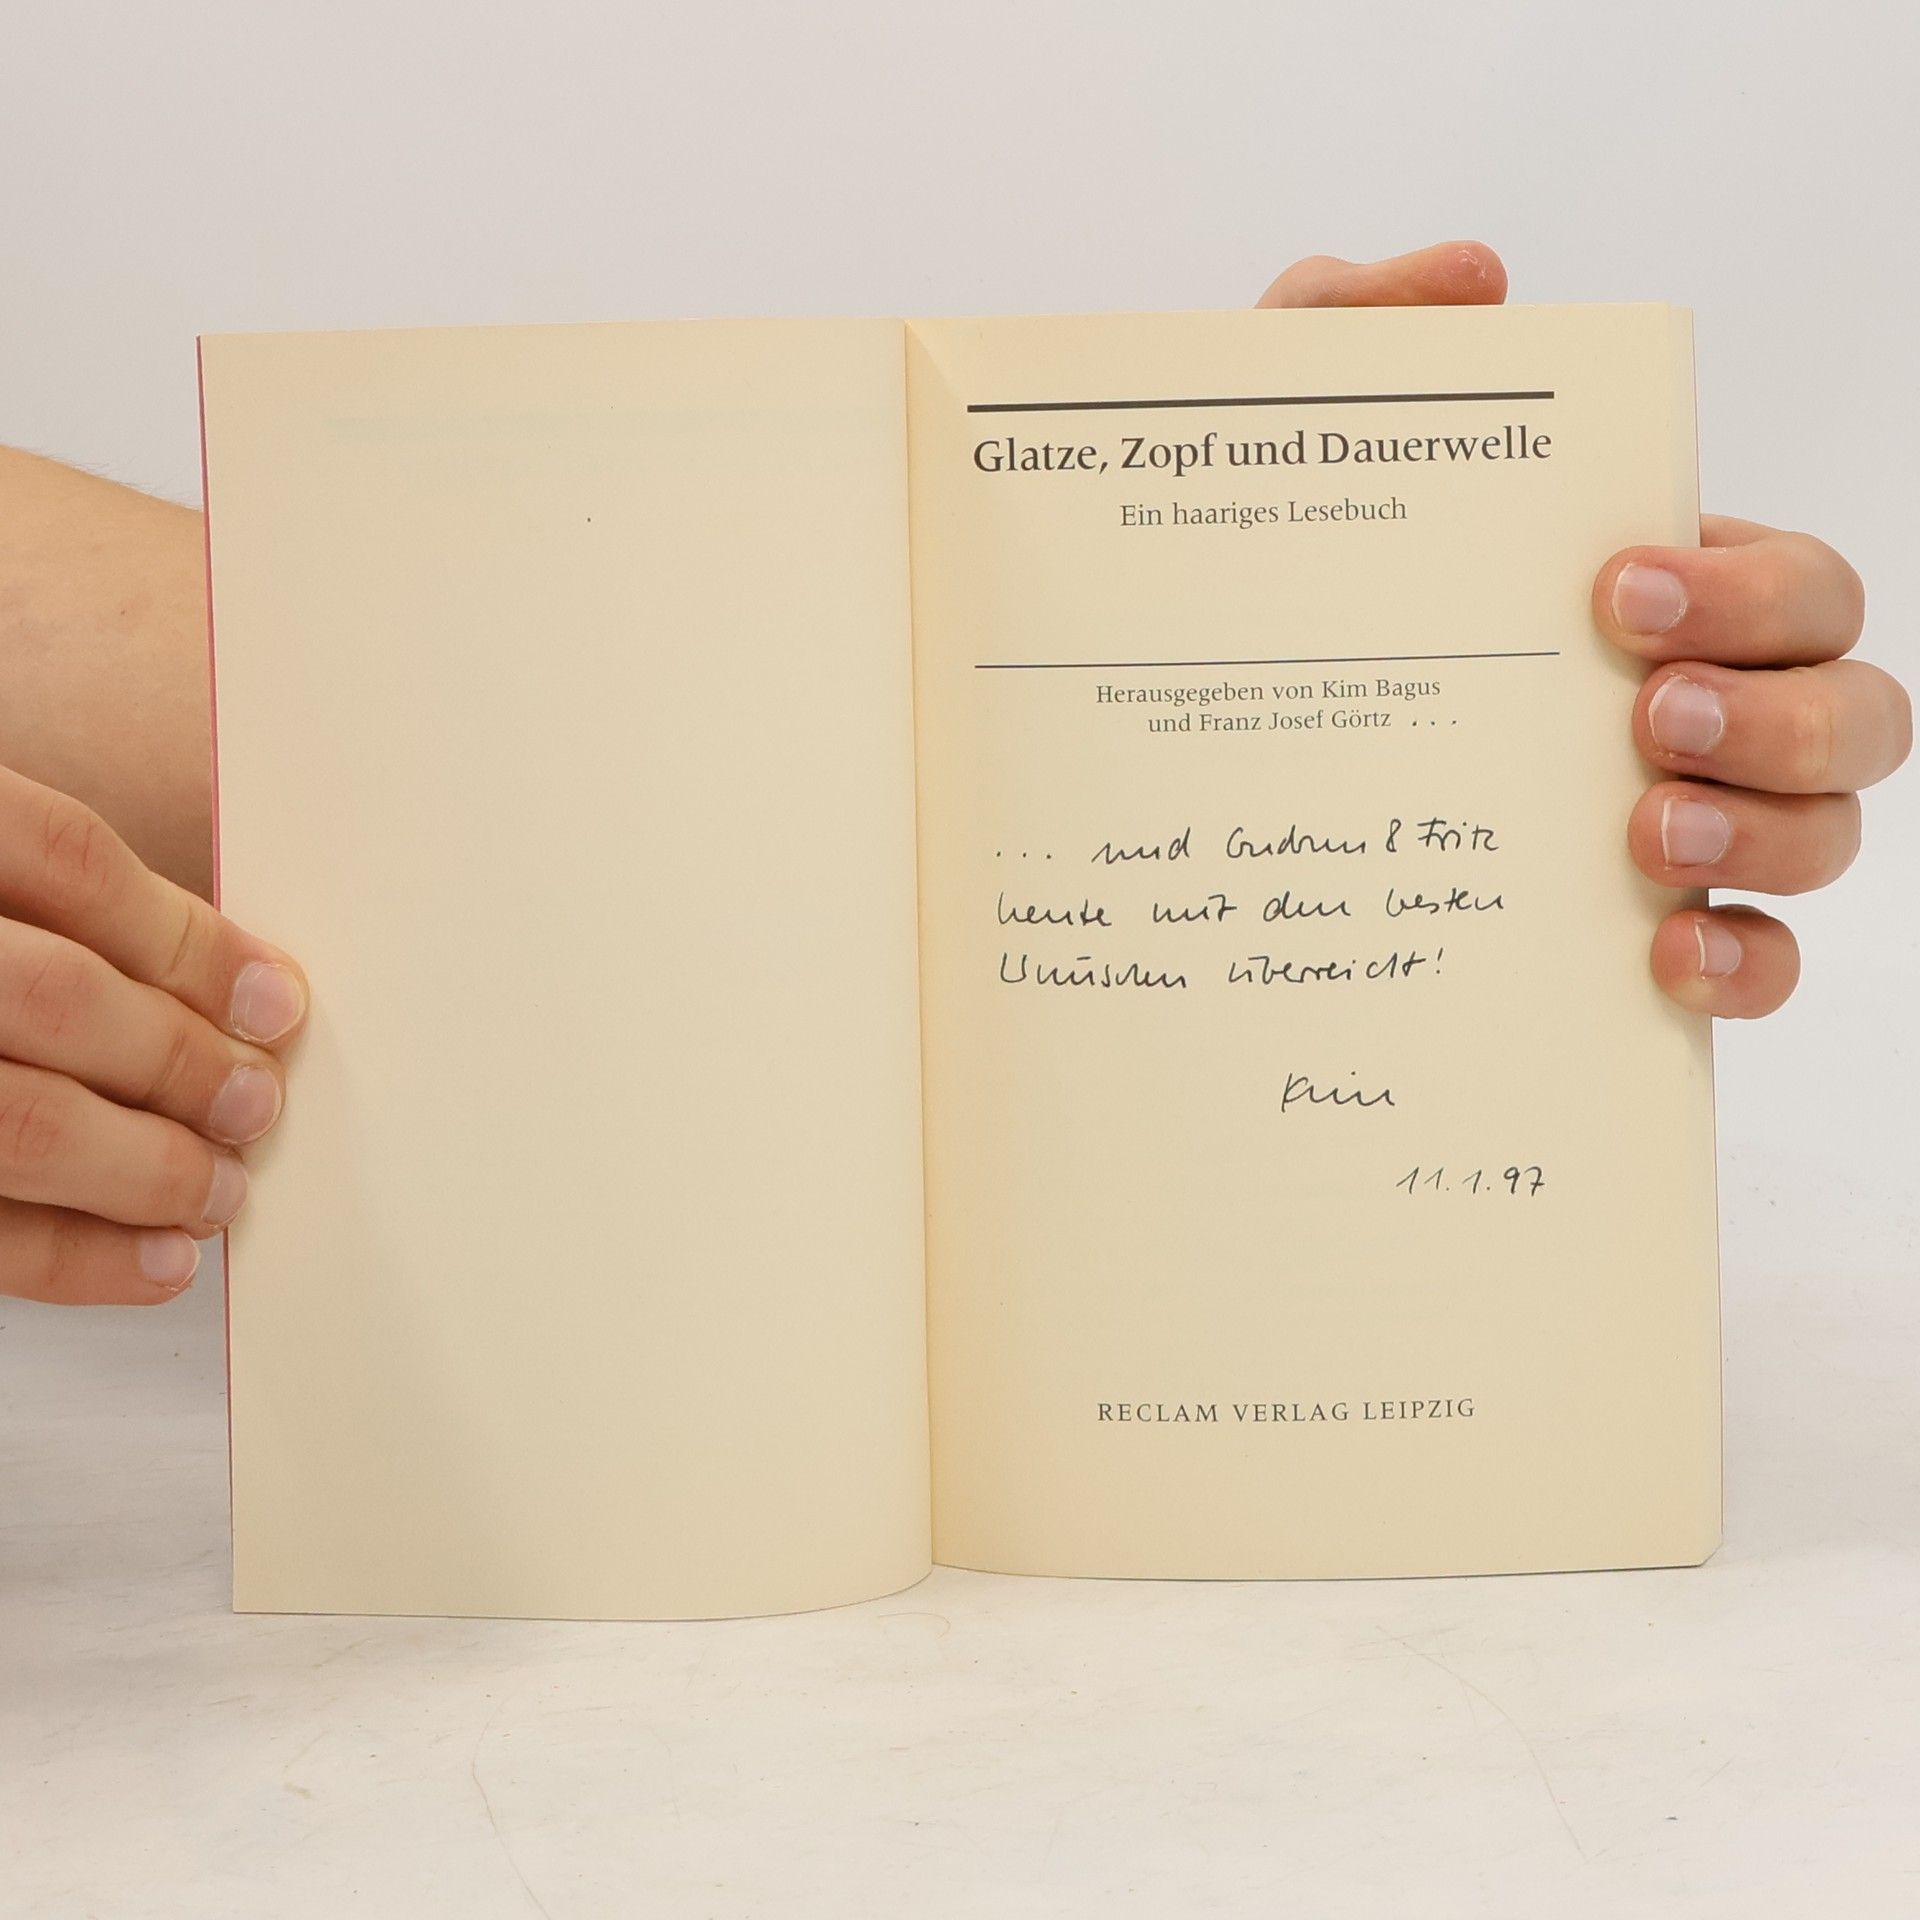 Glatze, Zopf und Dauerwelle
Ein haariges Lesebuch
Herausgegeben von Kim Bagus
und Franz Josef Görtz ...
... und Gudrun & Fritz
heute mit den besten
Wünschen überreicht!
Kim
11.1.97
RECLAM VERLAG LEIPZIG